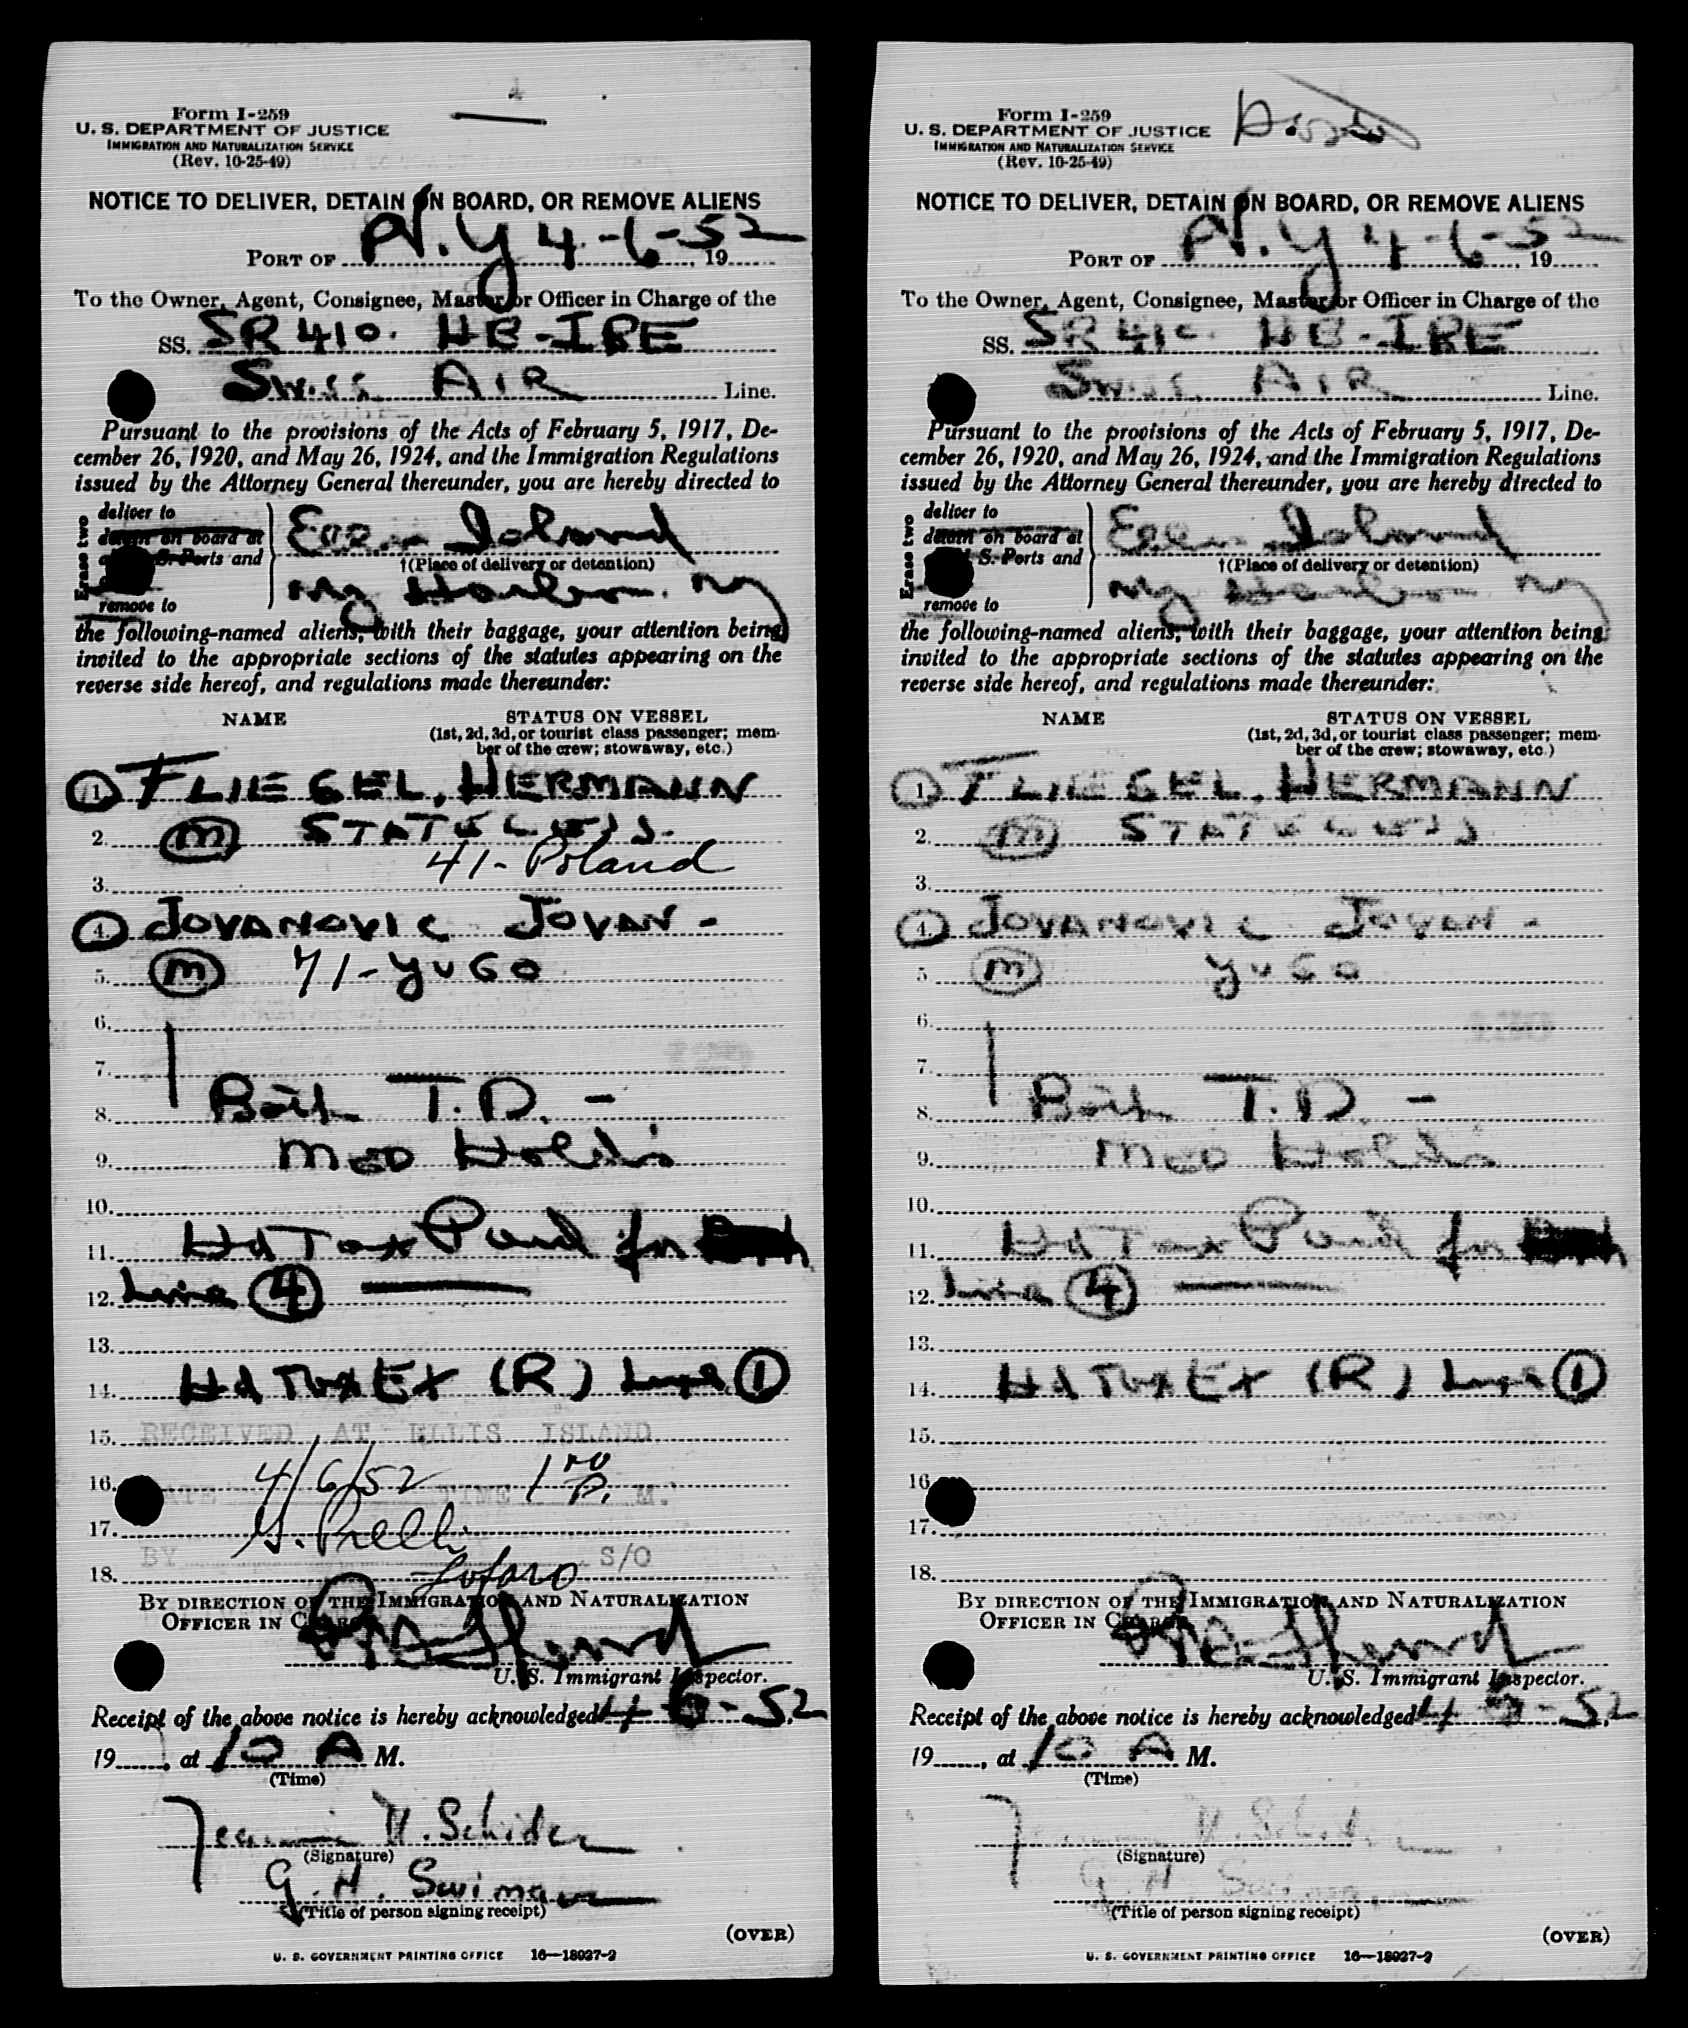 Form I-259
U. S. DEPARTMENT OF JUSTICE
IMMIGRATION AND NATURALIZATION SERVICE
(Rev. 10-25-49)
NOTICE TO DELIVER, DETAIN ON BOARD, OR REMOVE ALIENS
PORT OF N.Y 4-6-52, 19
To the Owner, Agent, Consignee, Master or Officer in Charge of the
SS. SR 410. HB-IBE
Swiss AIR Line.
Pursuant to the provisions of the Acts of February 5, 1917, De-
cember 26, 1920, and May 26, 1924, and the Immigration Regulations
issued by the Attorney General thereunder, you are hereby directed to
Erase two
deliver to
detain on board at
S. Ports and
remove to
Island
†(Place of delivery or detention)
Ny Harbor. Ny
the following-named aliens, with their baggage, your attention being
invited to the appropriate sections of the statutes appearing on the
reverse side hereof, and regulations made thereunder:
NAME STATUS ON VESSEL
(1st, 2d, 3d, or tourist class passenger; mem-
ber of the crew; stowaway, etc.)
1. FLIEGEL, HERMANN
2. M STATELESS.
3. 41- Poland
4. JOVANOVIC JOVAN -
5. M 71- YUGO
6.
7.
8. Both T.D. -
9. MED Hold's
10.
11. Hd Tax Paid for
12. Line 4
13.
14. Hd Tax Ex (R) Line 1
15. RECEIVED AT ELLIS ISLAND.
16. DATE 4/6/52 TIME 1 P. M.
17.
BY S/O
18. Lofaro
BY DIRECTION OF THE IMMIGRATION AND NATURALIZATION
OFFICER IN CHARGE
U. S. Immigrant Inspector.
Receipt of the above notice is hereby acknowledged 4-6-52,
19, at 10 A M.
(Time)
(Signature)
(Title of person signing receipt)
(OVER)
U. S. GOVERNMENT PRINTING OFFICE 16—18027-2
Form I-259
U. S. DEPARTMENT OF JUSTICE
IMMIGRATION AND NATURALIZATION SERVICE
(Rev. 10-25-49)
NOTICE TO DELIVER, DETAIN ON BOARD, OR REMOVE ALIENS
PORT OF N.Y 4-6-52, 19
To the Owner, Agent, Consignee, Master or Officer in Charge of the
SS. SR 410. HB-IBE
Swiss AIR Line.
Pursuant to the provisions of the Acts of February 5, 1917, De-
cember 26, 1920, and May 26, 1924, and the Immigration Regulations
issued by the Attorney General thereunder, you are hereby directed to
Erase two
deliver to
detain on board at
S. Ports and
remove to
Island
†(Place of delivery or detention)
Ny Harbor Ny
the following-named aliens, with their baggage, your attention being
invited to the appropriate sections of the statutes appearing on the
reverse side hereof, and regulations made thereunder:
NAME STATUS ON VESSEL
(1st, 2d, 3d, or tourist class passenger; mem-
ber of the crew; stowaway, etc.)
1. FLIEGEL, HERMANN
2. M STATELESS
3.
4. JOVANOVIC JOVAN -
5. M YUGO
6.
7.
8. Both T.D. -
9. MED Hold's
10.
11. Hd Tax Paid for
12. Line 4
13.
14. Hd Tax Ex (R) Line 1
15.
16.
17.
18.
BY DIRECTION OF THE IMMIGRATION AND NATURALIZATION
OFFICER IN CHARGE
U. S. Immigrant Inspector.
Receipt of the above notice is hereby acknowledged 4-6-52,
19, at 10 A M.
(Time)
(Signature)
(Title of person signing receipt)
(OVER)
U. S. GOVERNMENT PRINTING OFFICE 16—18027-2